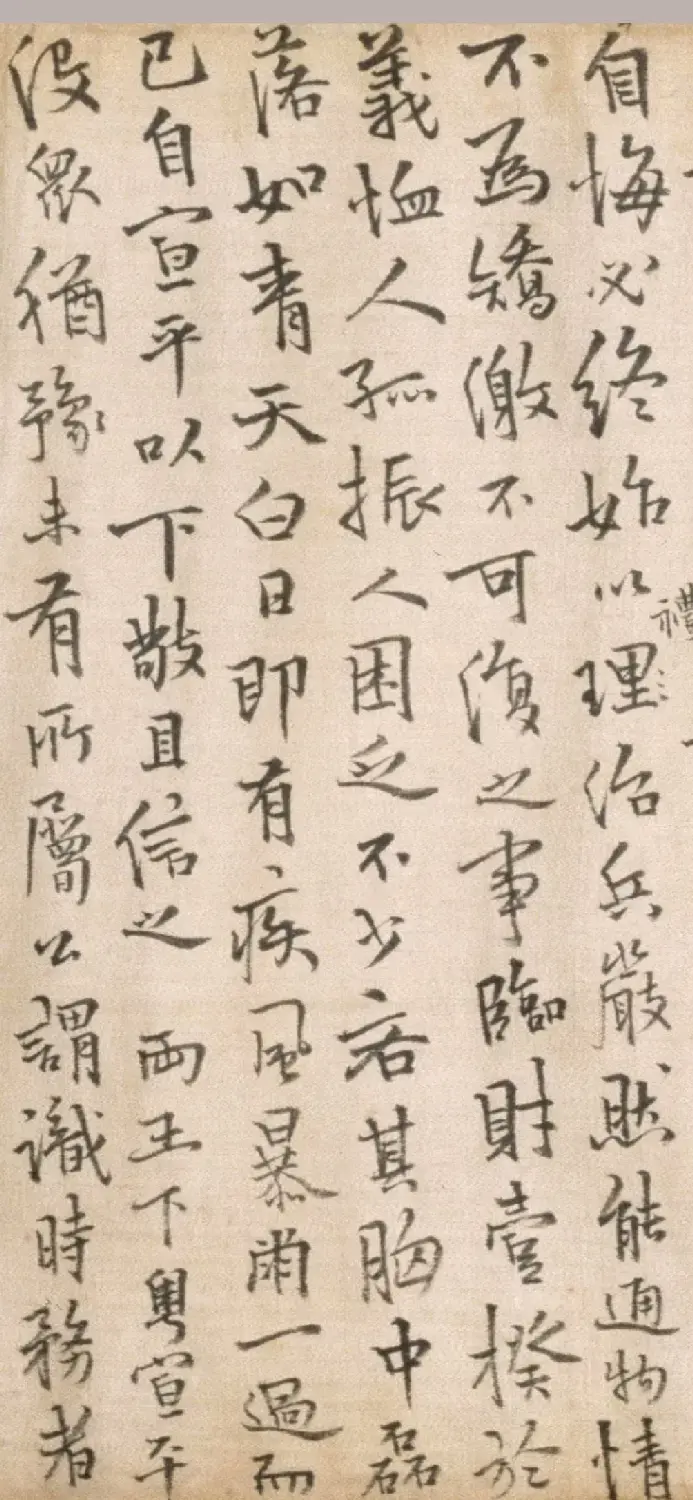 自悔必終始以理治兵嚴然能通物情
禮
不為矯激不可復之事臨財壹揆於
義恤人孤振人困乏不少吝其胸中磊
落如青天白日即有疾風暴雨一過而
已自宣平以下敬且信之兩王下粵宣平
沒眾猶豫未有所屬公謂識時務者